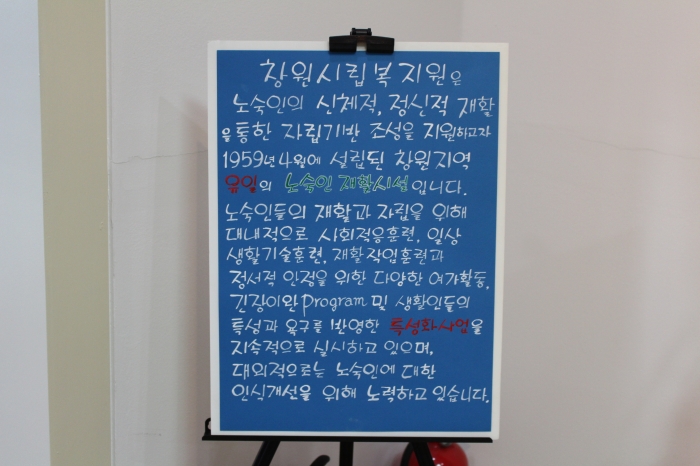 창원시립복지원은
노숙인의 신체적, 정신적 재활
을통한 자립기반 조성을 지원하고자
1959년 4월에 설립된 창원지역
유일의 노숙인 재활시설입니다.
노숙인들의 재활과 자립을 위해
대내적으로 사회적응훈련, 일상
생활기술훈련, 재활작업훈련과
정서적 안정을 위한 다양한 여가활동,
긴장이완 program 및 생활인들의
특성과 욕구를 반영한 특성화사업을
지속적으로 실시하고 있으며,
대외적으로는 노숙인에 대한
인식개선을 위해 노력하고 있습니다.